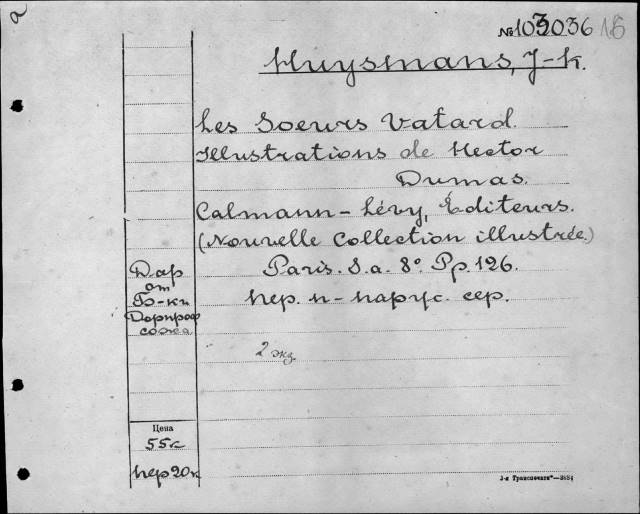 №103036 18
Huysmans, J-K.
Les Soeurs Vatard.
Illustrations de Hector
Dumas.
Calmann-Lévy, Éditeurs.
(Nouvelle Collection illustrée.)
Paris. S.a. 8° Pp. 126.
пер. п-парус. сер.
2 экз
Дар
от
Б-ки
Дорпроф
сожа
Цена
55к
пер 20к